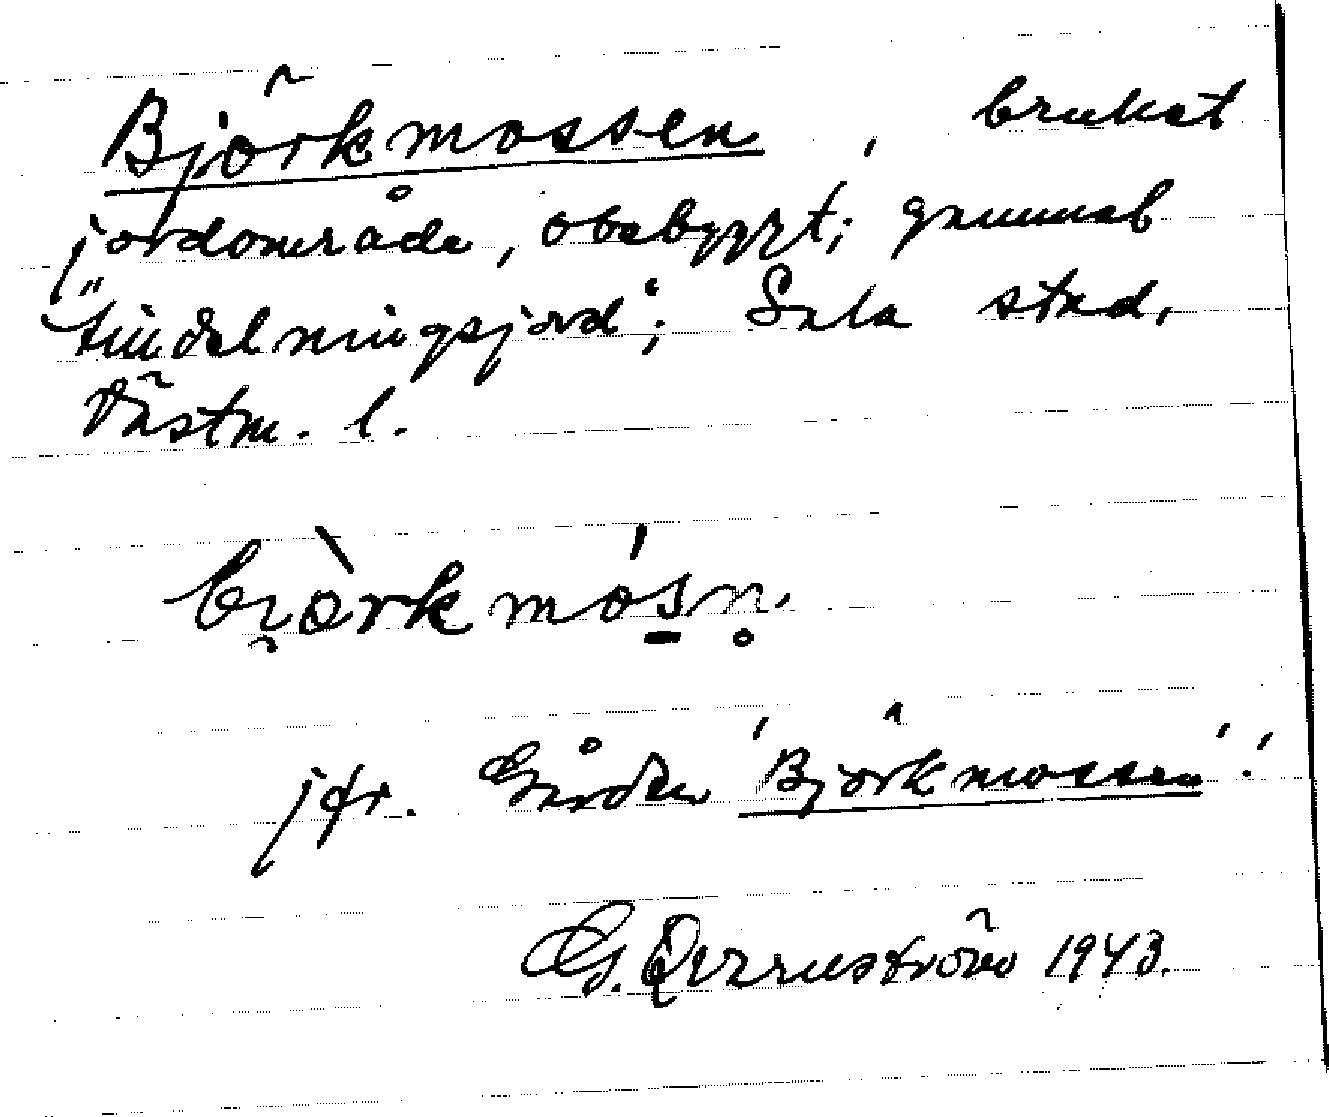 Björkmossen, brukat
jordområde, obebyggt; gammal
"tindelningsjord"; Sala stad,
Västm. l.
bjòrkmósn.
jfr. Gården 'Björkmossen'!
G. Qvarnström 1943.